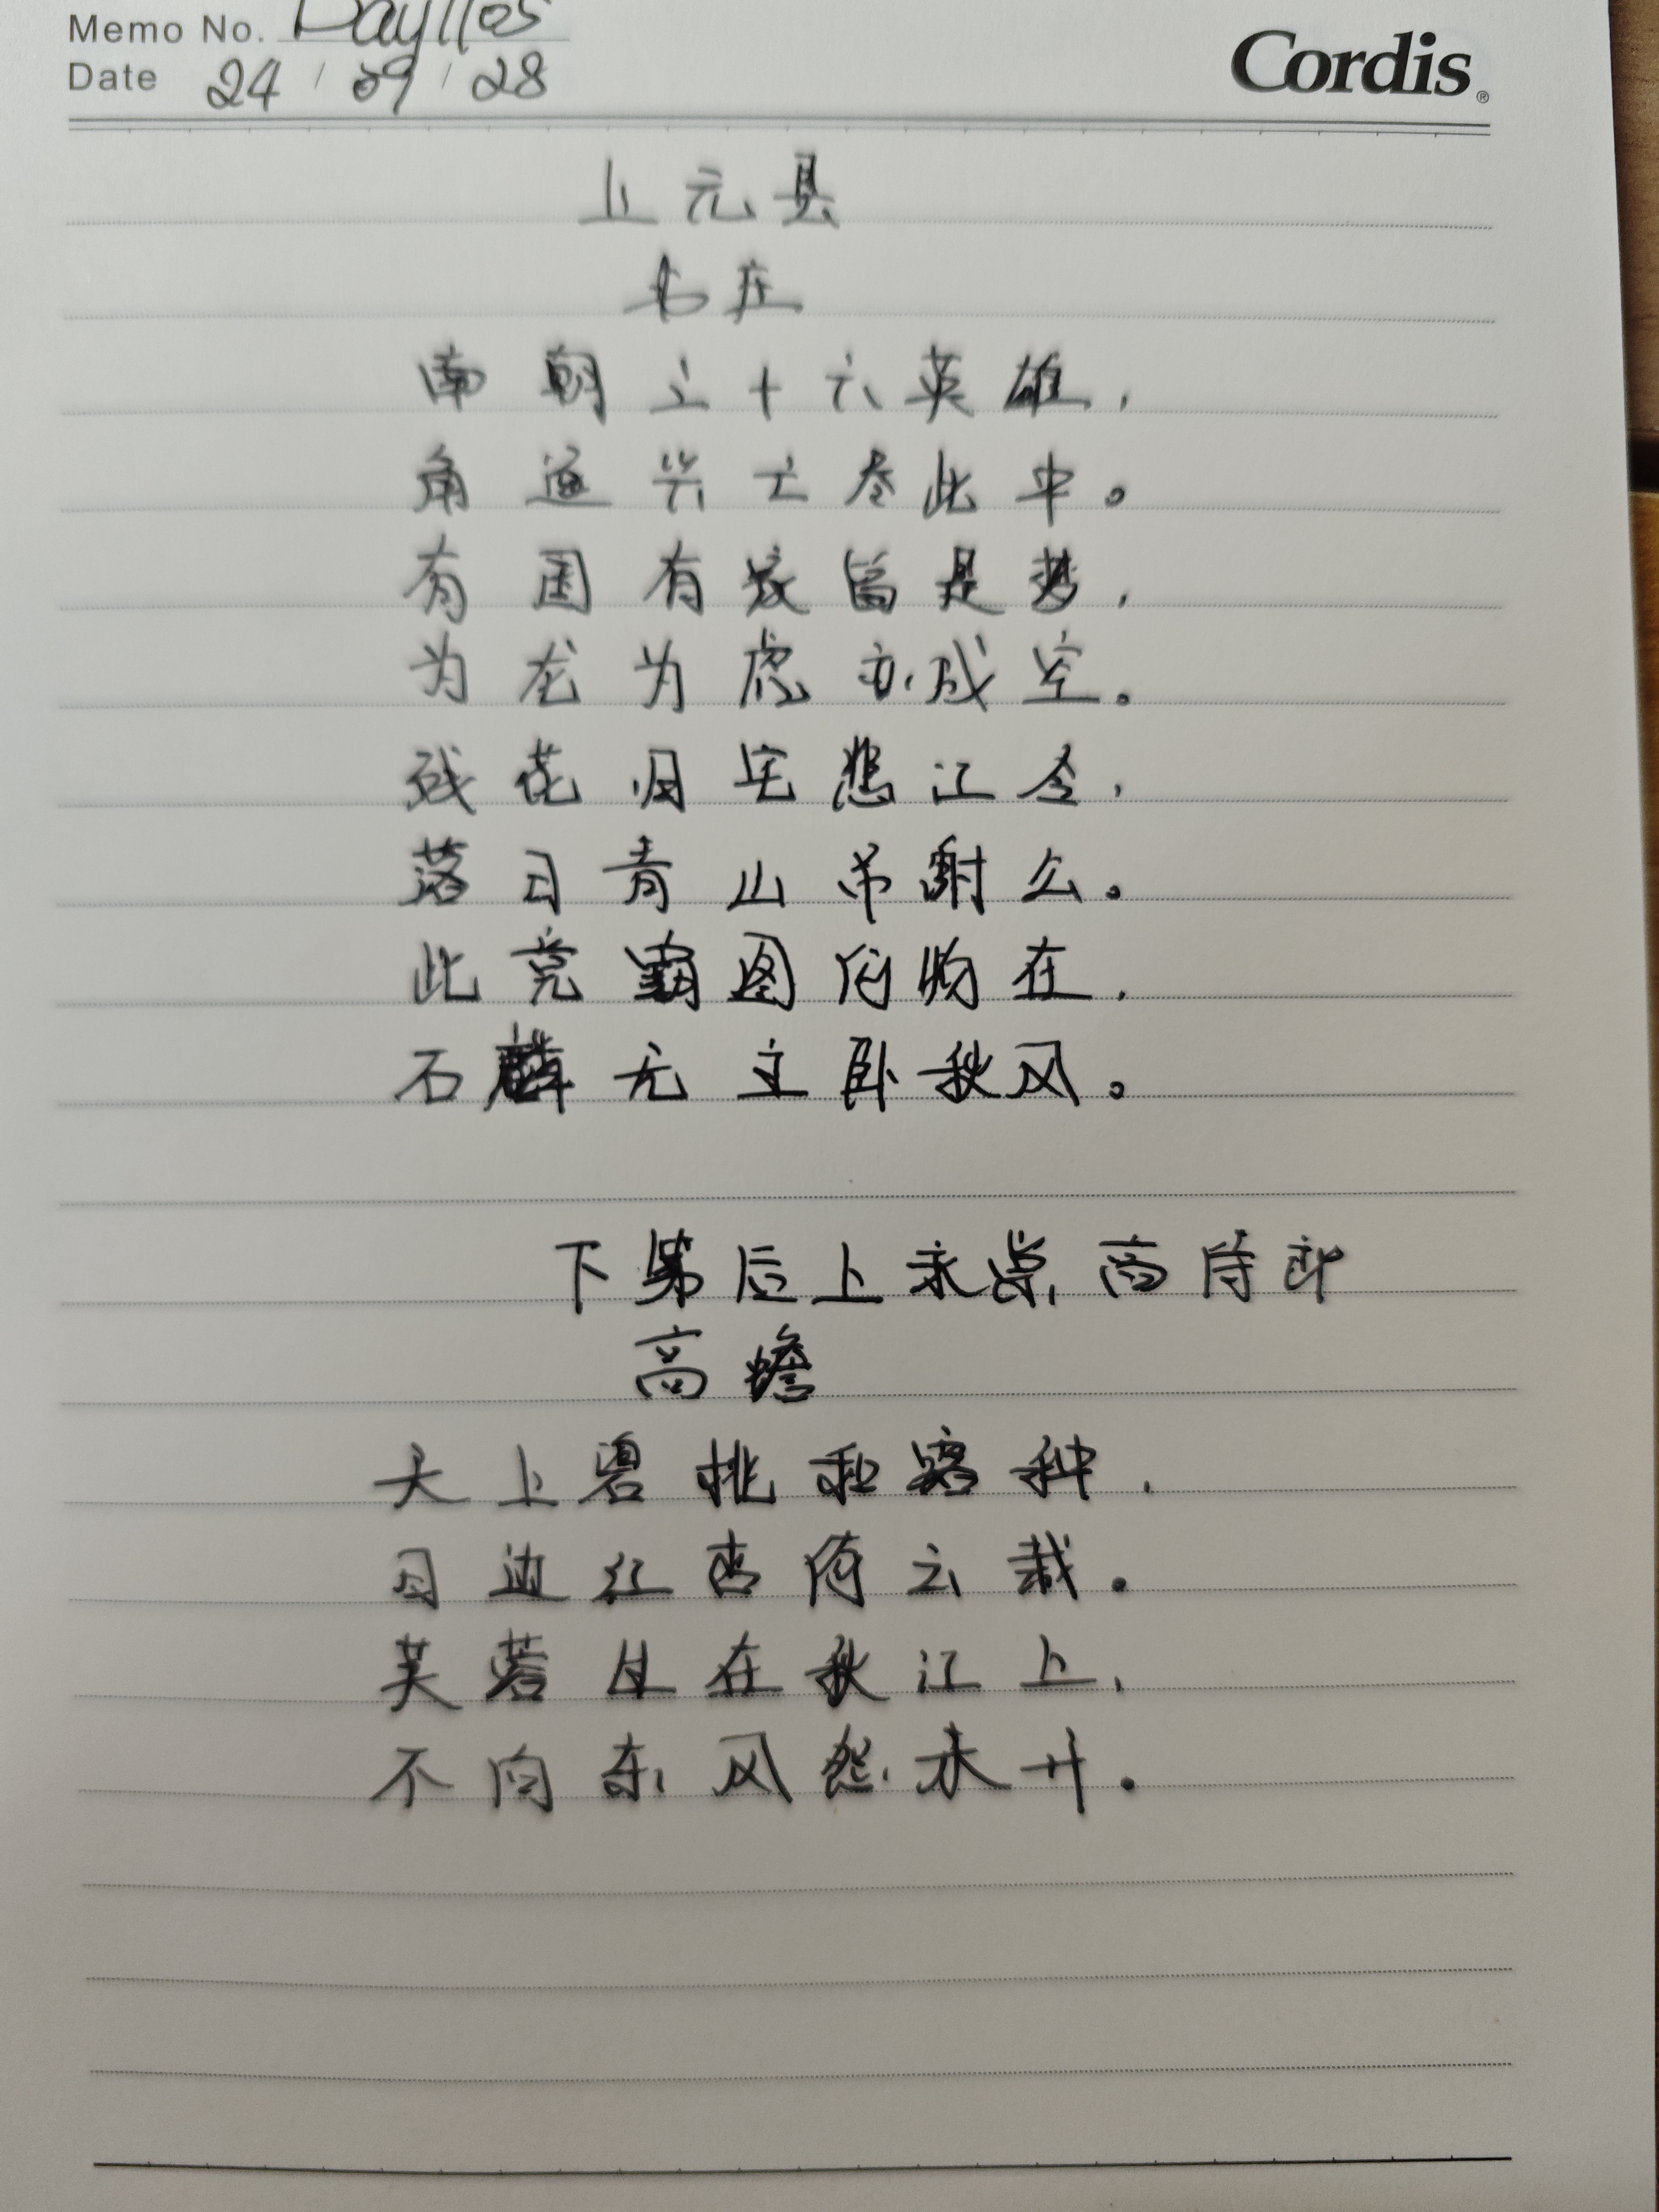 Memo No. Day1105
Cordis®
Date 24/09/28
上元县
韦庄
南朝三十六英雄，
角逐兴亡尽此中。
有国有家皆是梦，
为龙为虎亦成空。
残花旧宅悲江令，
落日青山吊谢公。
此竟霸图何物在，
石麟无主卧秋风。
下第后上永崇高侍郎
高蟾
天上碧桃和露种，
日边红杏倚云栽。
芙蓉生在秋江上，
不向东风怨未开。